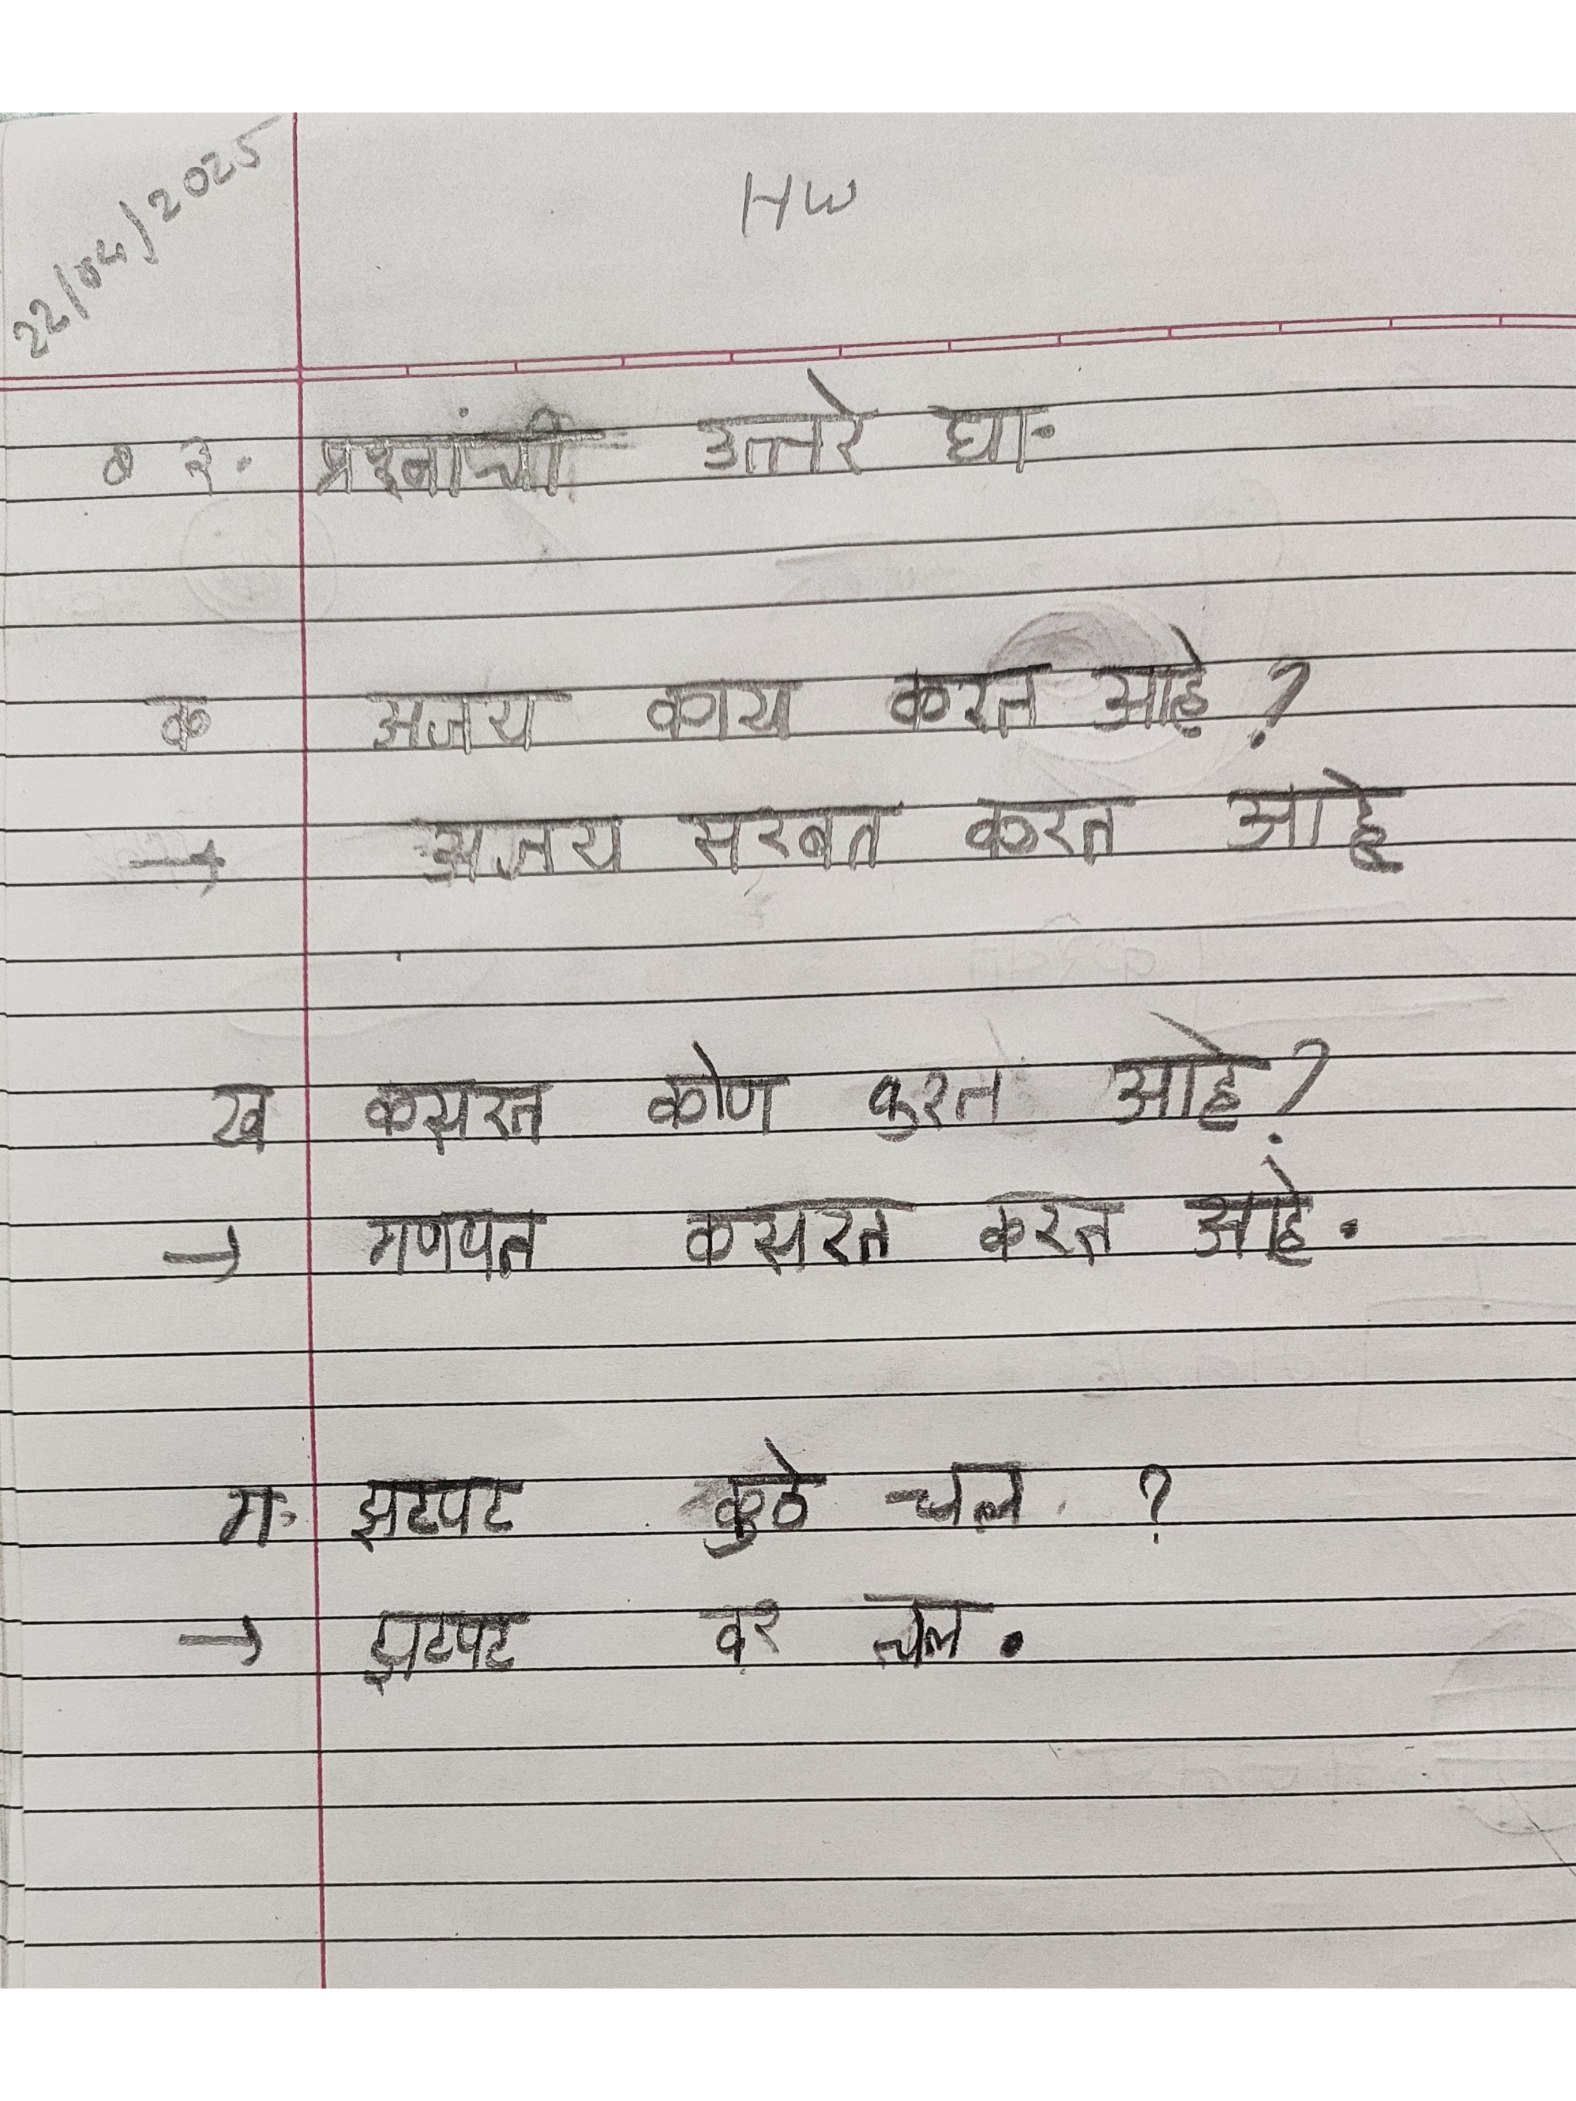 22/04/2025
HW
ब २. प्रश्नांची उत्तरे घा.
क अजय काय करत आहे?
→ अजय सरबत करत आहे
ख कसरत कोण करत आहे?
→ गणपत कसरत करत आहे.
ग. झटपट कुठे चल ?
→ झटपट वर चल.